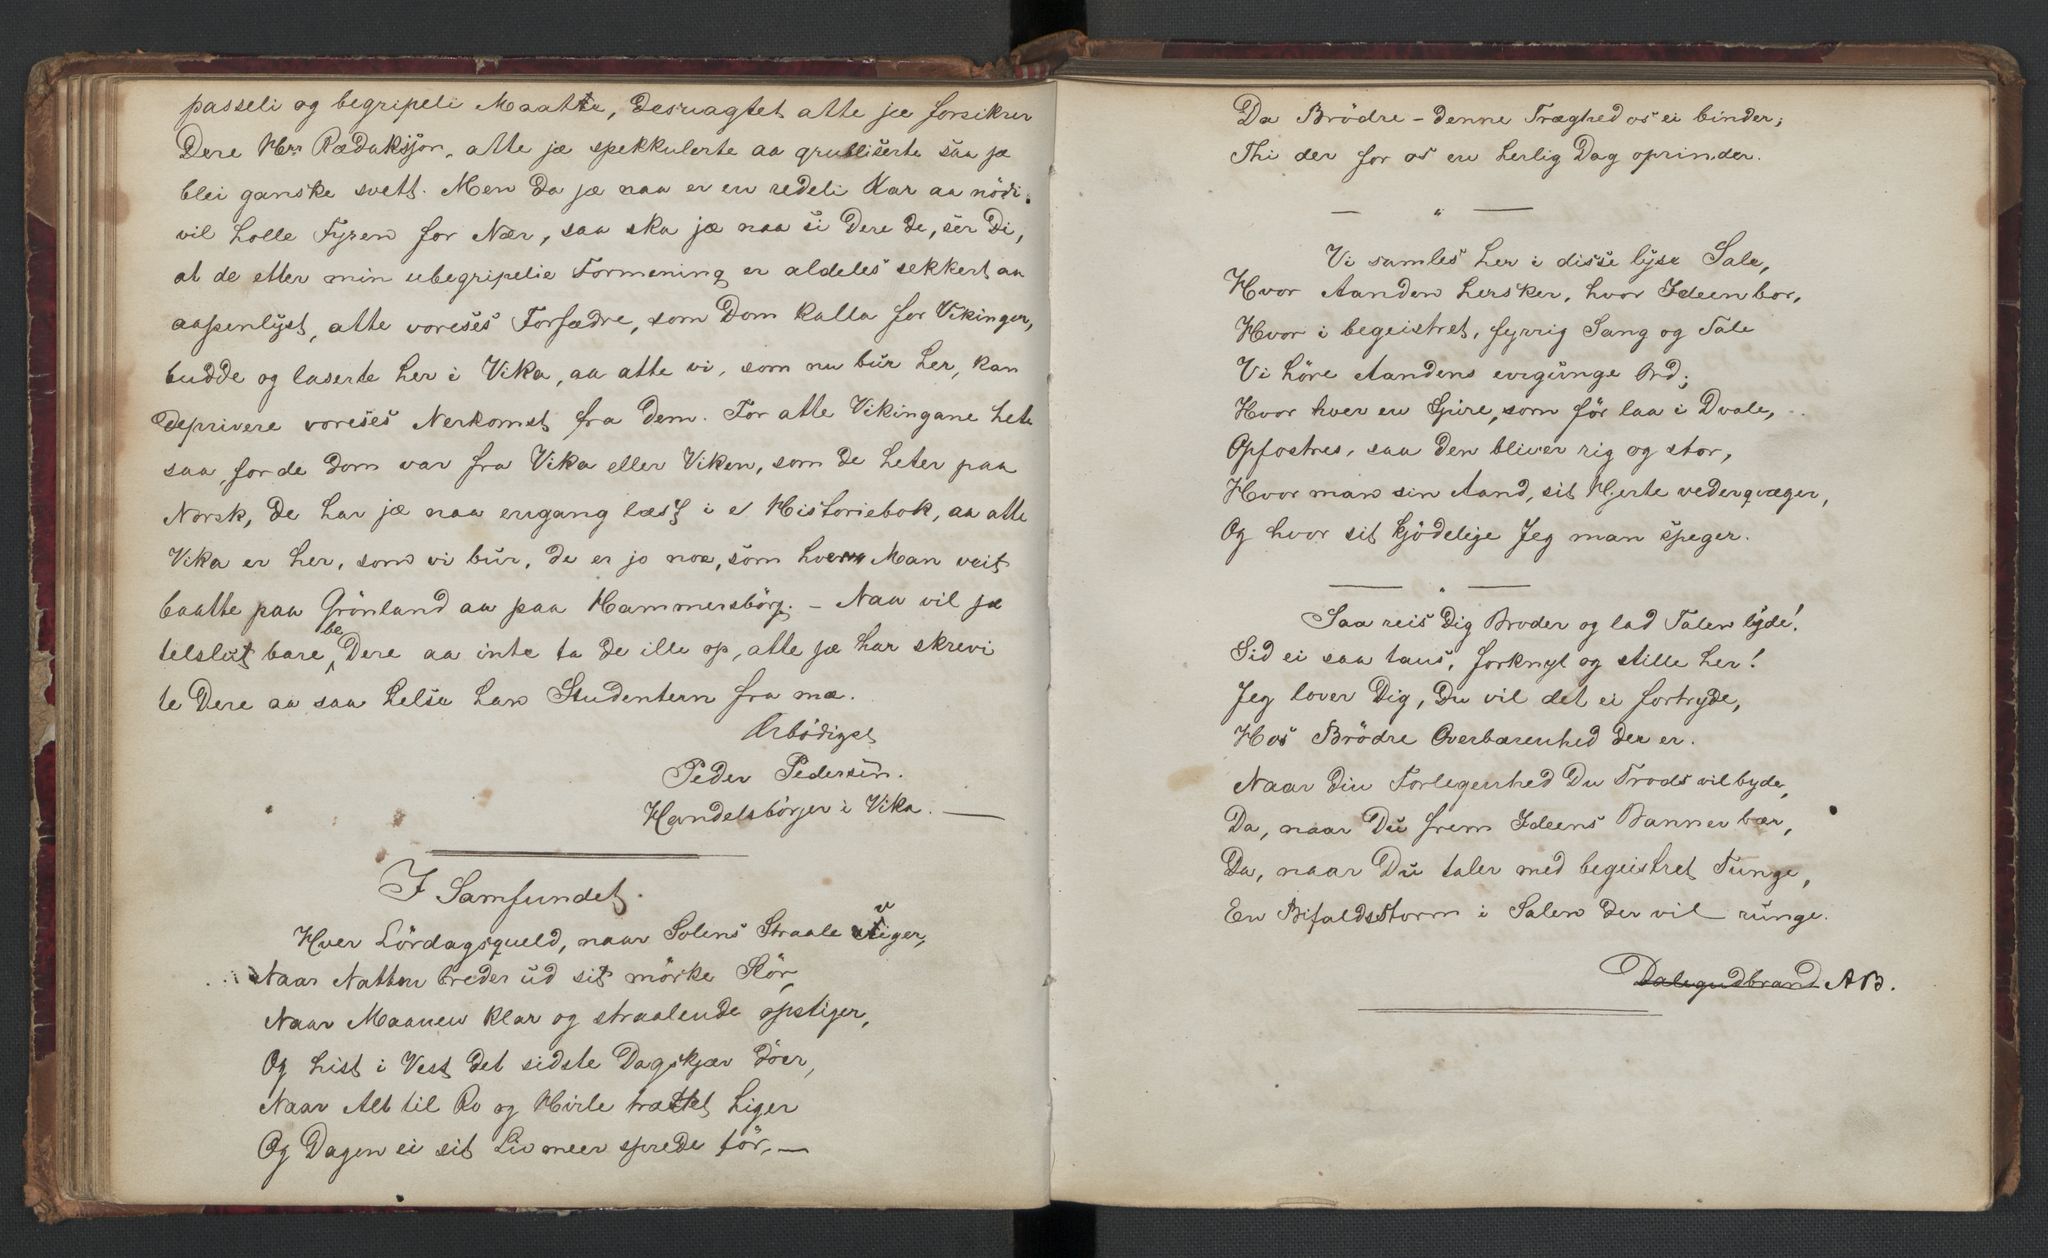 passeli og begripeli Maatte, desuagtet atte jæ forsikrer
Dere Hrr Rædaksjon, atte jæ spekkulerte aa grubliserte saa jæ
blei ganske svett. Men da jæ naa er en redeli Kar aa nödi
vil holle Fyren for Nær, saa ska jæ naa si Dere de, ser Di,
at de etter min ubegripelie Formening er aldeles sekkert aa
aapenlyst, atte voreses Forfædre, som Dom kalla for Vikinger,
budde og laserte her i Vika, aa atte vi, som nu bur her, kan
deprivere voreses Nerkomst fra dem. For atte Vikingane hete
saa, forde dom var fra Vika eller Viken, som de heter paa
Norsk, de har jæ naa engang læst i e Historiebok, aa atte
Vika er her, som vi bur, de er jo noe, som hver Man veit
baatte paa Grönland aa paa Hammersbörg. – Naa vil jæ
telslut bare be Dere aa inte ta de ille op, atte jæ har skrevi
te Dere aa saa helse han Studentern fra mæ.
Ærbödigst
Peder Pedersen.
Handelsbörjer i Vika. —
I Samfundet.
Hver Lördagsqueld, naar Solens Straale viger,
Naar Natten breder ud sit mörke Slör,
Naar Maanen klar og straalende opstiger,
Og hist i Vest det sidste Dagskjær döer,
Naar Alt til Ro og Hvile trættet higer
Og Dagen ei sit Liv meer sprede tör, —
Da Brödre – denne Træghed os ei binder;
Thi der for os en herlig Dag oprinder.
— " —
Vi samles her i disse lyse Sale,
Hvor Aanden hersker, hvor Ideen bor,
Hvor i begeistret, fyrrig Sang og Tale
Vi höre Aandens evigunge Ord;
Hvor hver en Spire, som för laa i Dvale,
Opfostres, saa den bliver rig og stor,
Hvor man sin Aand, sit Hjerte vederqvæger,
Og hvor sit kjödelige Jeg man speger.
— " —
Saa reis Dig Broder og lad Talen lyde!
Sid ei saa taus, forknyt og stille her!
Jeg lover Dig, Du vil det ei fortryde,
Hos Brödre Overbærenhed der er.
Naar din Forlegenhed Du Trods vil byde,
Da, naar Du frem Ideens Banner bær,
Da, naar Du taler med begeistret Tunge,
En Bifaldsstorm i Salen der vil runge.
Dalegudbrand AB.